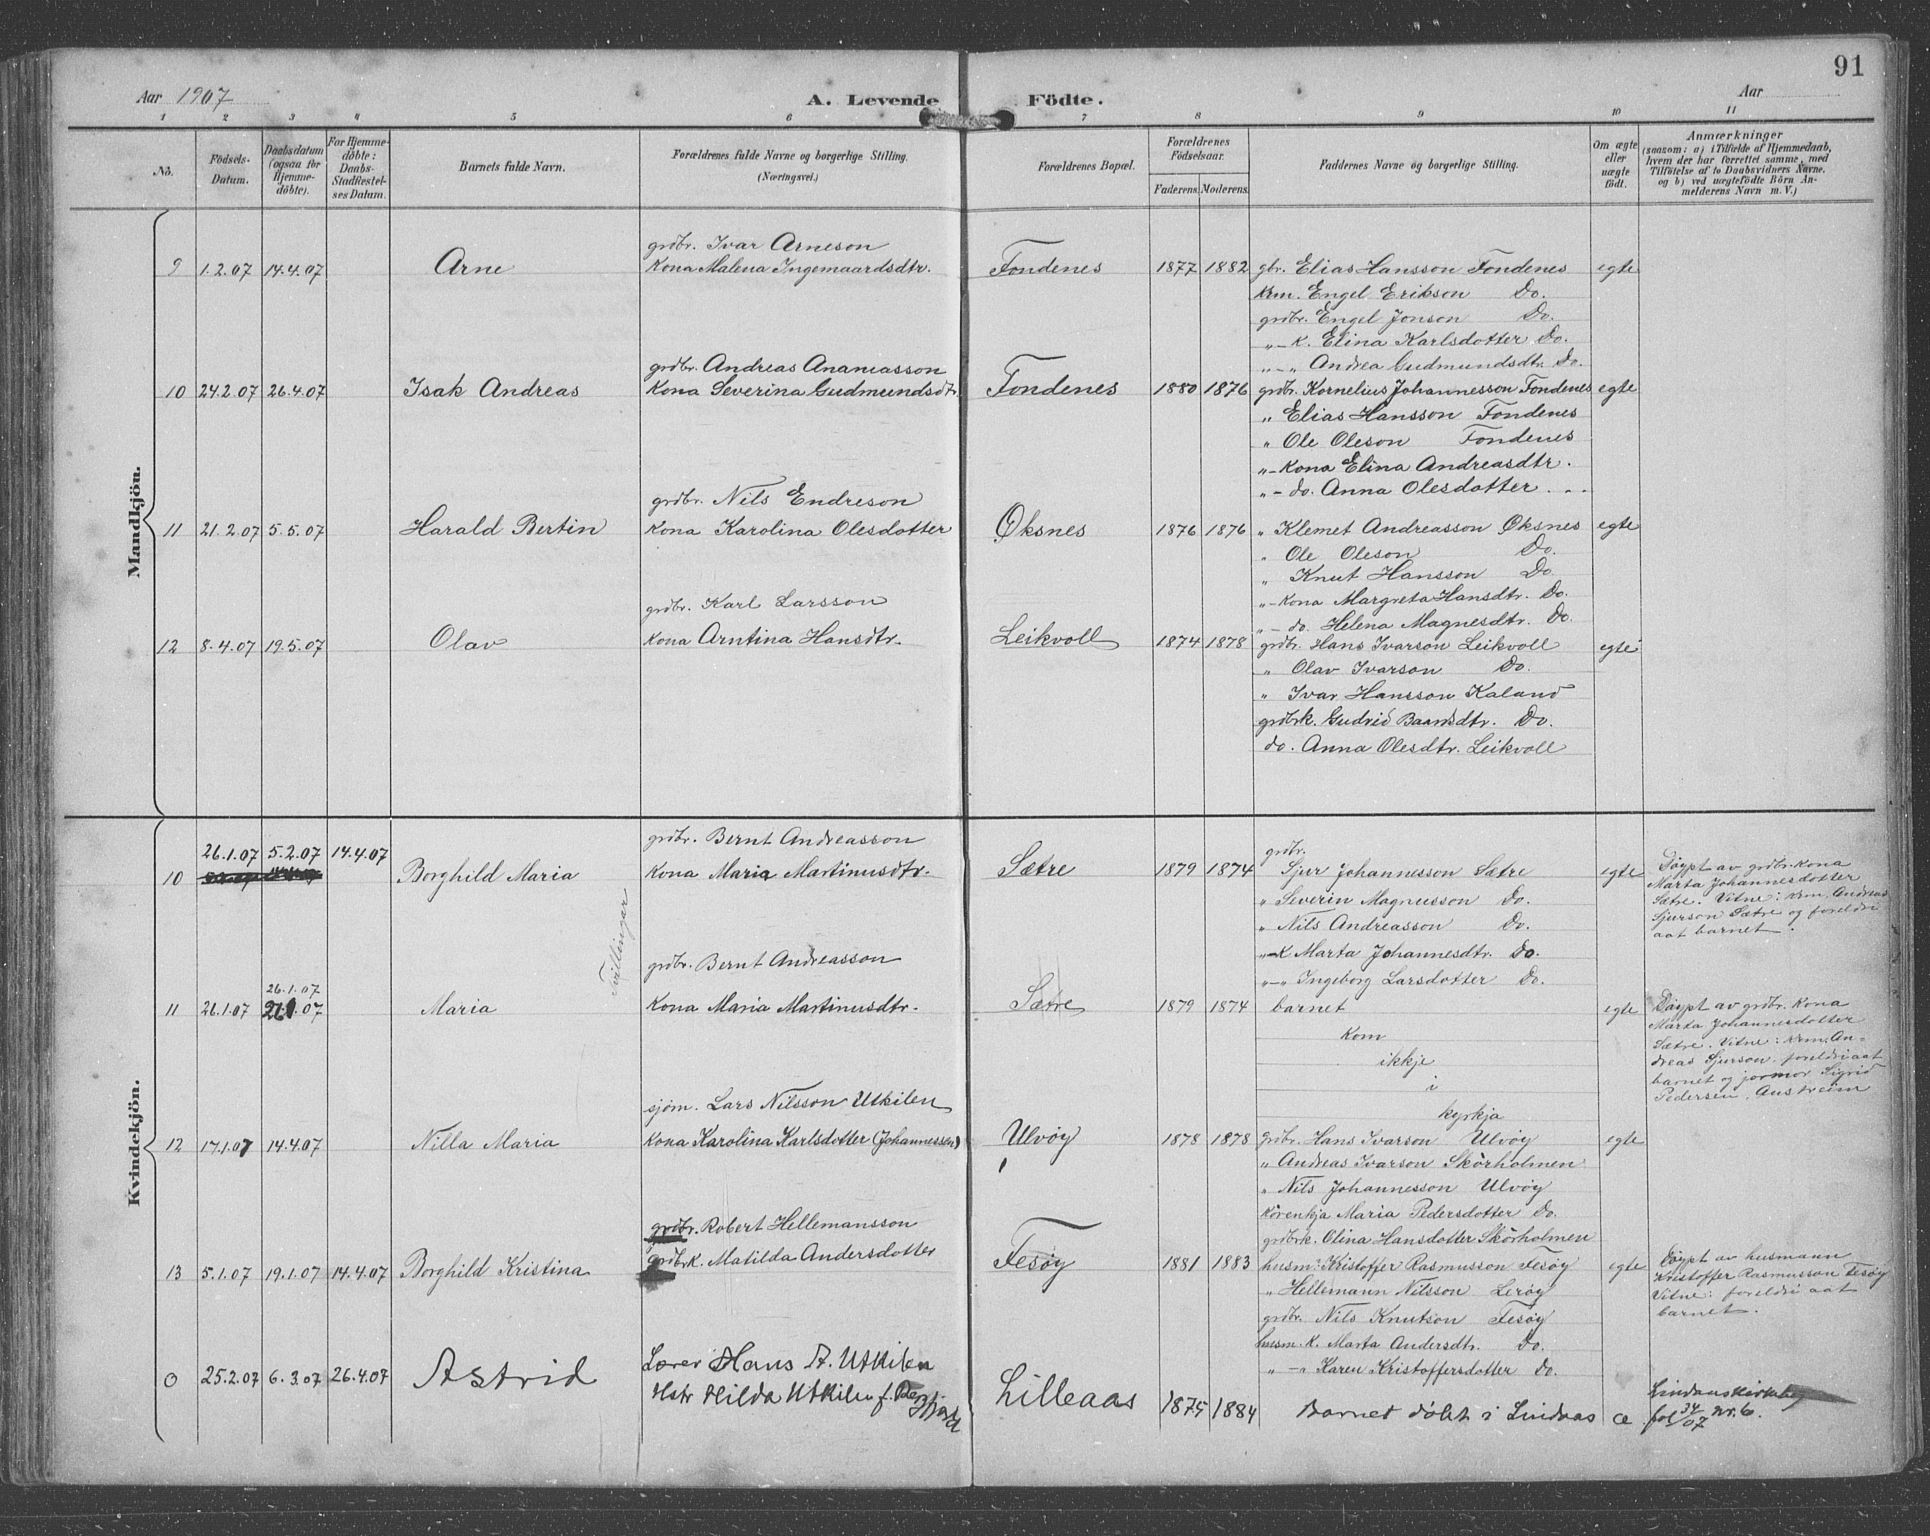 91
Aar 1907
A. Levende Födte.
Aar
1 2 3 4 5 6 7 8 9 10 11
No.
Födsels-Datum.
Daabsdatum (ogsaa for Hjemme-döbte).
For Hjemme-döbte: Daabs-Stadfestel-ses Datum.
Barnets fulde Navn.
Forældrenes fulde Navne og borgerlige Stilling.
(Næringsvei.)
Forældrenes Bopæl.
Forældrenes Födselsaar.
Faderens. Moderens.
Faddernes Navne og borgerlige Stilling.
Om ægte eller uægte födt.
Anmærkninger
(saasom: a) i Tilfælde af Hjemmedaab,
hvem der har forrettet samme, med
Tilföielse af to Daabsvidners Navne,
og b) ved uægtefödte Börn An-
melderens Navn m. V.)
Mandkjön.
grdbr. Ivar Arneson
9 1.2.07 14.4.07 Arne Kona Malena Ingemaardsdtr. Fondenes 1877 1882 gbr. Elias Hansson Fondenes egte
krm. Engel Erikson Do.
grdbr. Engel Jonson Do.
"-k. Elina Karlsdotter Do.
"-" Andrea Gudmundsdtr. Do.
grdbr. Andreas Ananiasson
10 24.2.07 26.4.07 Isak Andreas Kona Severina Gudmundsdtr. Fondenes 1880 1876 grdbr. Kornelius Johannesson Fondenes egte
" Elias Hansson Fondenes
" Ole Oleson Fondenes
"-Kona Elina Andreasdtr.
"- do. Anna Olesdotter ...
grdbr. Nils Endreson
11 21.2.07 5.5.07 Harald Bertin Kona Karolina Olesdotter Øksnes 1876 1876 " Klemet Andreasson Øksnes egte
" Ole Oleson Do.
" Knut Hansson Do
"-Kona Margreta Hansdtr. Do.
"- do. Helena Magnesdtr. Do.
grdbr. Karl Larsson
12 8.4.07 19.5.07 Olav Kona Arntina Hansdtr. Leikvoll 1874 1878 grdbr. Hans Ivarson Leikvoll egte
" Olav Ivarson Do.
" Ivar Hansson Kaland
grdbrk. Gudrid Baardsdtr. Do.
do. Anna Olesdtr. Leikvoll
Kvindekjön.
grdbr. Bernt Andreasson
10 26.1.07 5.2.07 14.4.07 Borghild Maria Kona Maria Martinusdtr. Sætre 1879 1874 grdbr. Sjur Johannesson Sætre egte
" Severin Magnusson Do.
" Nils Andreasson Do.
"-K Marta Johannesdtr. Do.
"-" Ingeborg Larsdotter Do.
Döypt av grdbr. kona
Marta Johannesdotter
Sætre. Vitne: krm. Andreas
Sjurson Sætre og foreldri
aat barnet.
Tvillingar
grdbr. Bernt Andreasson
26.1.07
11 26.1.07 Maria Kona Maria Martinusdtr. Sætre 1879 1874 barnet egte
kom
ikkje
i
kyrkja
Döypt av grdbr. kona
Marta Johannesdotter
Sætre. Vitne: krm. An-
dreas Sjurson. foreldri aat
barnet og jormor Sigrid
Pedersen, Austreim
sjöm. Lars Nilsson Utkilen
12 17.1.07 14.4.07 Nilla Maria Kona Karolina Karlsdotter (Johannessen) Ulvöy 1878 1878 grdbr. Hans Ivarson Ulvöy egte
" Andreas Ivarson Skörholmen
" Nils Johannesson Ulvöy
Kårenkja Maria Pedersdotter Do.
grdbrk. Olina Hansdotter Skörholmen
grdbr. Robert Hellemansson
13 5.1.07 19.1.07 14.4.07 Borghild Kristina grdbrk. Matilda Andersdotter Fesöy 1881 1883 husm. Kristoffer Rasmusson Fesöy egte
" Hellemann Nilsson Leröy
grdbr. Nils Knutson Fesöy
husm. K. Marta Andersdtr. Do.
"-" Karen Kristoffersdotter Do.
Döypt av husmann
Kristoffer Rasmusson Fesöy
Vitne: foreldri aat
barnet.
Lærer Hans A. Utkilen
0 25.2.07 6.3.07 26.4.07 Astrid Hstr Hilda Utkilen f. Lilleaas 1875 1884 Barnet döbt i Lindaas æ
Lindaas
fol 34/07 nr. 6.